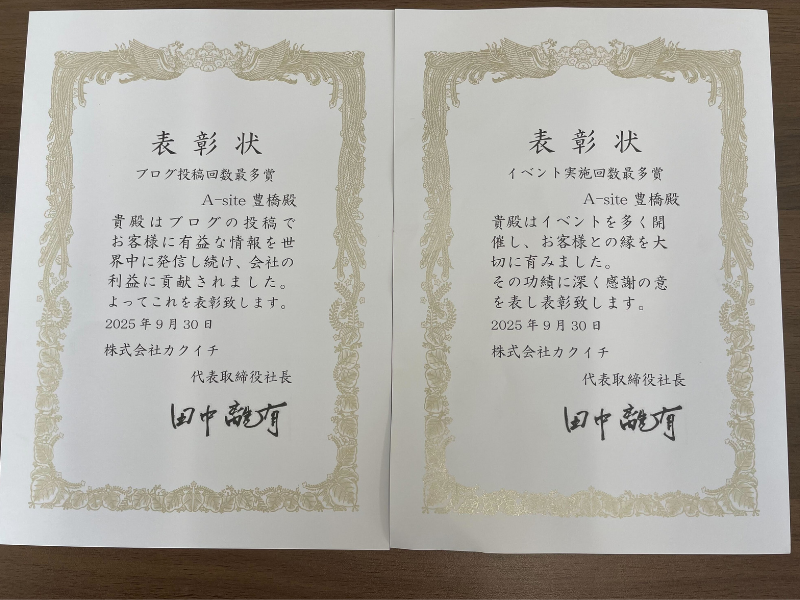 表彰状
ブログ投稿回数最多賞
A-site 豊橋殿
貴殿はブログの投稿で
お客様に有益な情報を世
界中に発信し続け、会社の
利益に貢献されました。
よってこれを表彰致します。
2025年9月30日
株式会社カクイチ
代表取締役社長
田中離有
表彰状
イベント実施回数最多賞
A-site 豊橋殿
貴殿はイベントを多く開
催し、お客様との縁を大
切に育みました。
その功績に深く感謝の意
を表し表彰致します。
2025年9月30日
株式会社カクイチ
代表取締役社長
田中離有